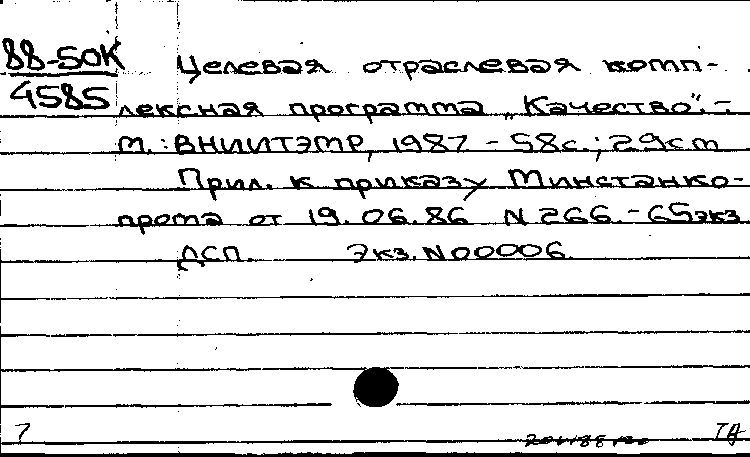 88-50К
4585
Целевая отраслевая комп-
лексная программа „Качество“.-
М.: ВНИИТЭМР, 1987 - 58с.; 29см
Прил. к приказу Минстанко-
прома от 19.06.86 N 266.-65экз
ДСП. Экз. N00006.
7
ТА